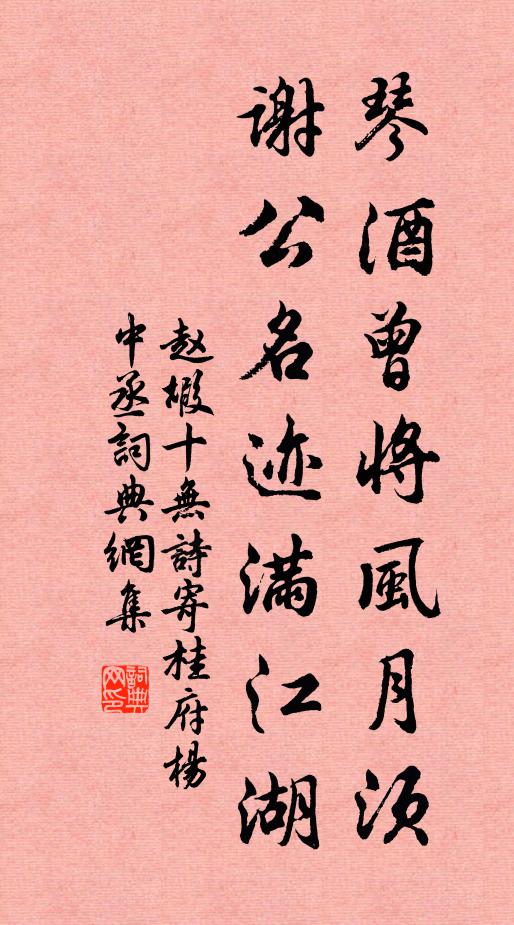 琴酒曾將風月須
謝公名迹滿江湖
赵嘏十無詩寄桂府楊
中丞詞典網集
詞典网印